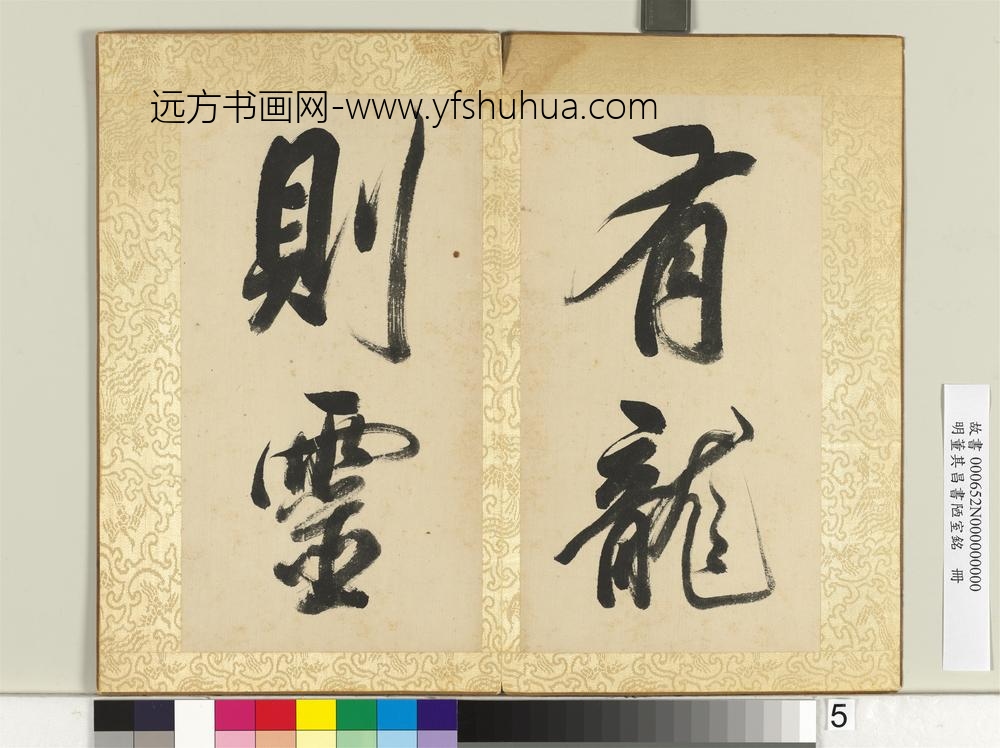 远方书画网-www.yfshuhua.com
有龍
則靈
故書 000652N000000000
明董其昌書陋室銘 冊
5